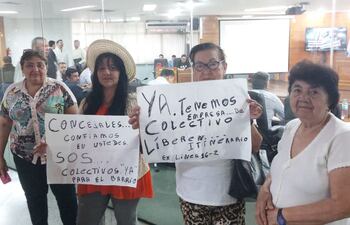 CONCEJALES...
CONFIAMOS
EN USTEDES
SOS...
COLECTIVOS "YA"
PARA EL BARRIO
YA. TENEMOS
EMPRESA... DE
COLECTIVO
LIBEREN....
ITINERARIO
EX LINEA 16-2